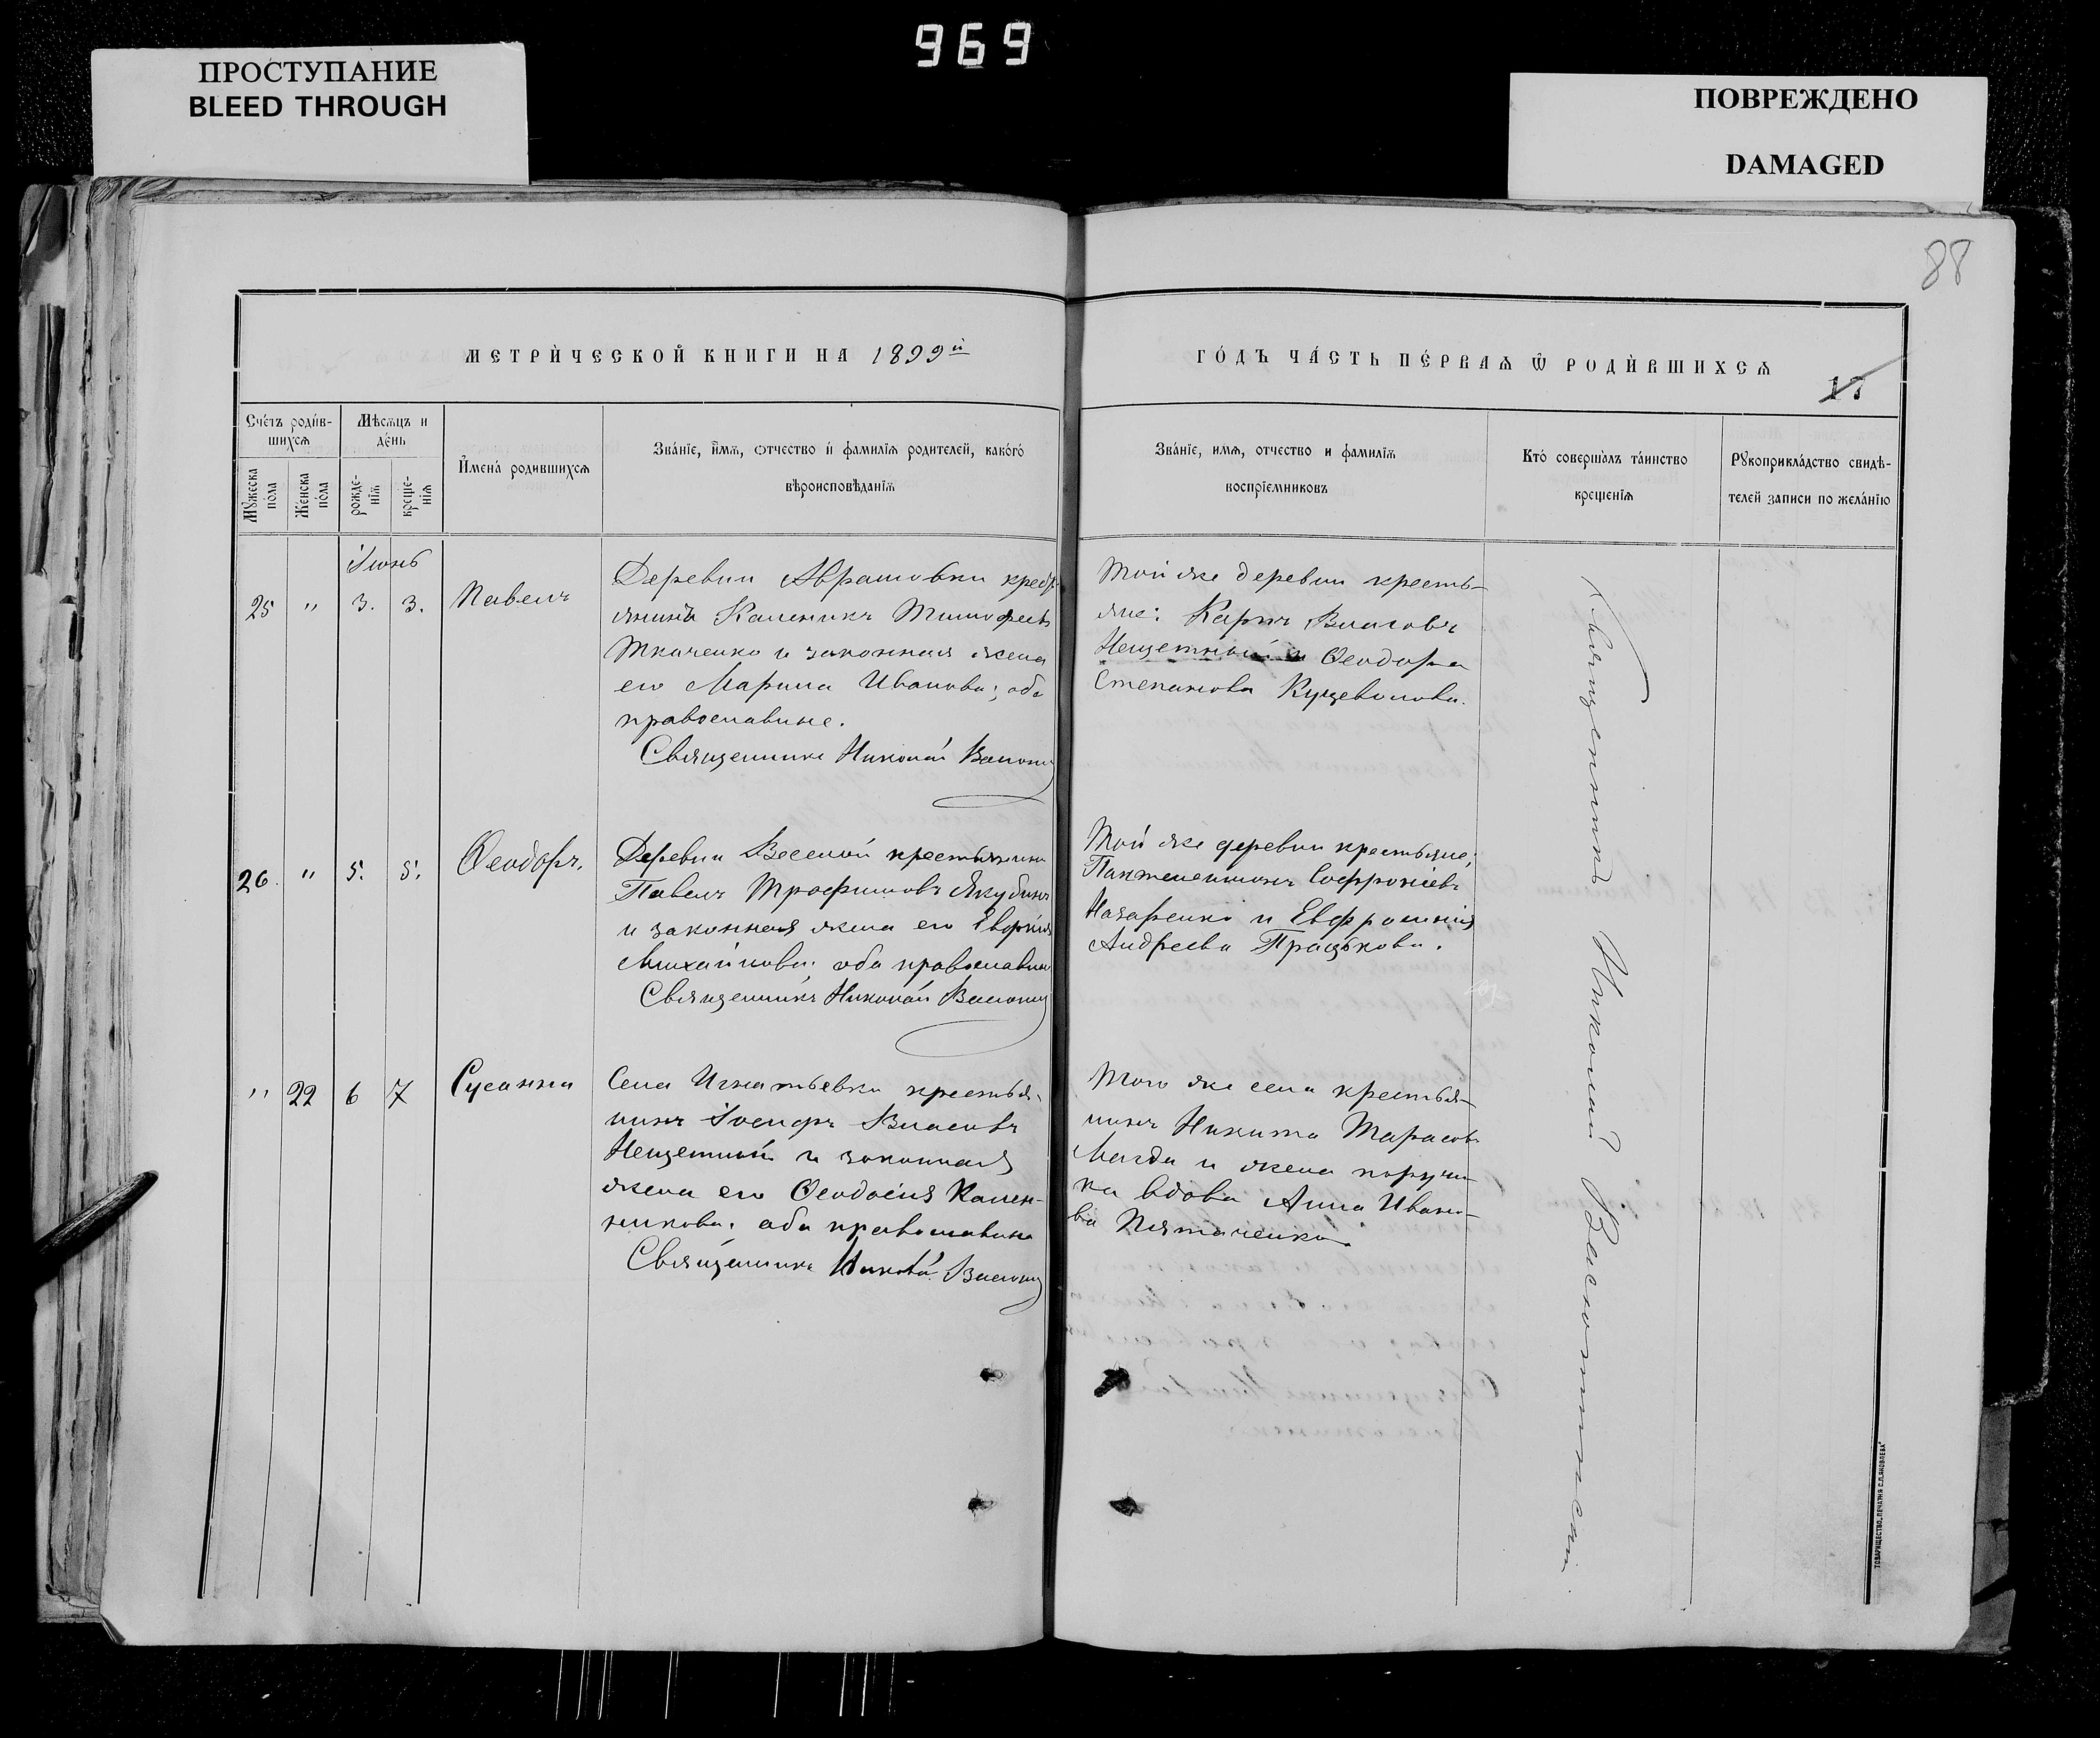 969
ПРОСТУПАНИЕ
BLEED THROUGH
ПОВРЕЖДЕНО
DAMAGED
88
МЕТРИ́ЧЕСКОЙ КНИГИ НА 1899й
ГО́ДЪ ЧА́СТЬ ПЕ́РВАѦ Ѿ РОДИ́ВШИХСѦ
17
Сче́тъ роди́в-
шихсѧ
Мѣсѧцъ и
де́нь
Мꙋжеска
по́ла
Же́нска
по́ла
рожде-
нїѧ
креще-
нїѧ
И҆мена̀ родившихсѧ
Зва́нїе, и҆́мѧ, ѻтчество и҆ фамилїѧ родителей, како́гѡ
вѣроисповѣданїѧ
Зва́нїе, и́мѧ, отчество и фамилїѧ
воспрїемниковъ
Кто́ соверша̀лъ та́инство
крещенїѧ
Рꙋкоприкла́дство свидѣ-
телей записи по жела́нїю
Іюнь
25 " 3. 3. Павелъ
Деревни Аврамовки крестъ-
янинъ Каленикъ Тимофеевъ
Ткаченко и законная жена
его Марина Иванова; оба
православные.
Священникъ Николай
Той же деревни кресть-
яне: Карпъ Власовъ
Нещетный и Ѳеодора
Степанова Куцеволова.
26. " 5. 5. Ѳеодоръ.
Деревни Веселой крестьянинъ
Павелъ Трофимовъ Якубинъ
и законная жена его Евфимія
Михайлова; оба православные
Священникъ Николай
Той же деревни крестьяне:
Пантелеимонъ Софроніевъ
Назаренко и Евфросинія
Андреева Працькова.
" 22 6 7 Сусанна
Села Игнатьевки крестья-
нинъ Іосифъ Власовъ
Нещетный и законная
жена его Ѳеодосія Кален-
никова; оба православные
Священникъ Николай
Того же села крестья-
нинъ Никита Тарасовъ
Магда и жена поручи-
ка вдова Анна Ивано-
ва Пятаченко.
Священникъ Николай
ТОВАРИЩЕСТВО „ПЕЧАТНЯ С.П.ЯКОВЛЕВА“